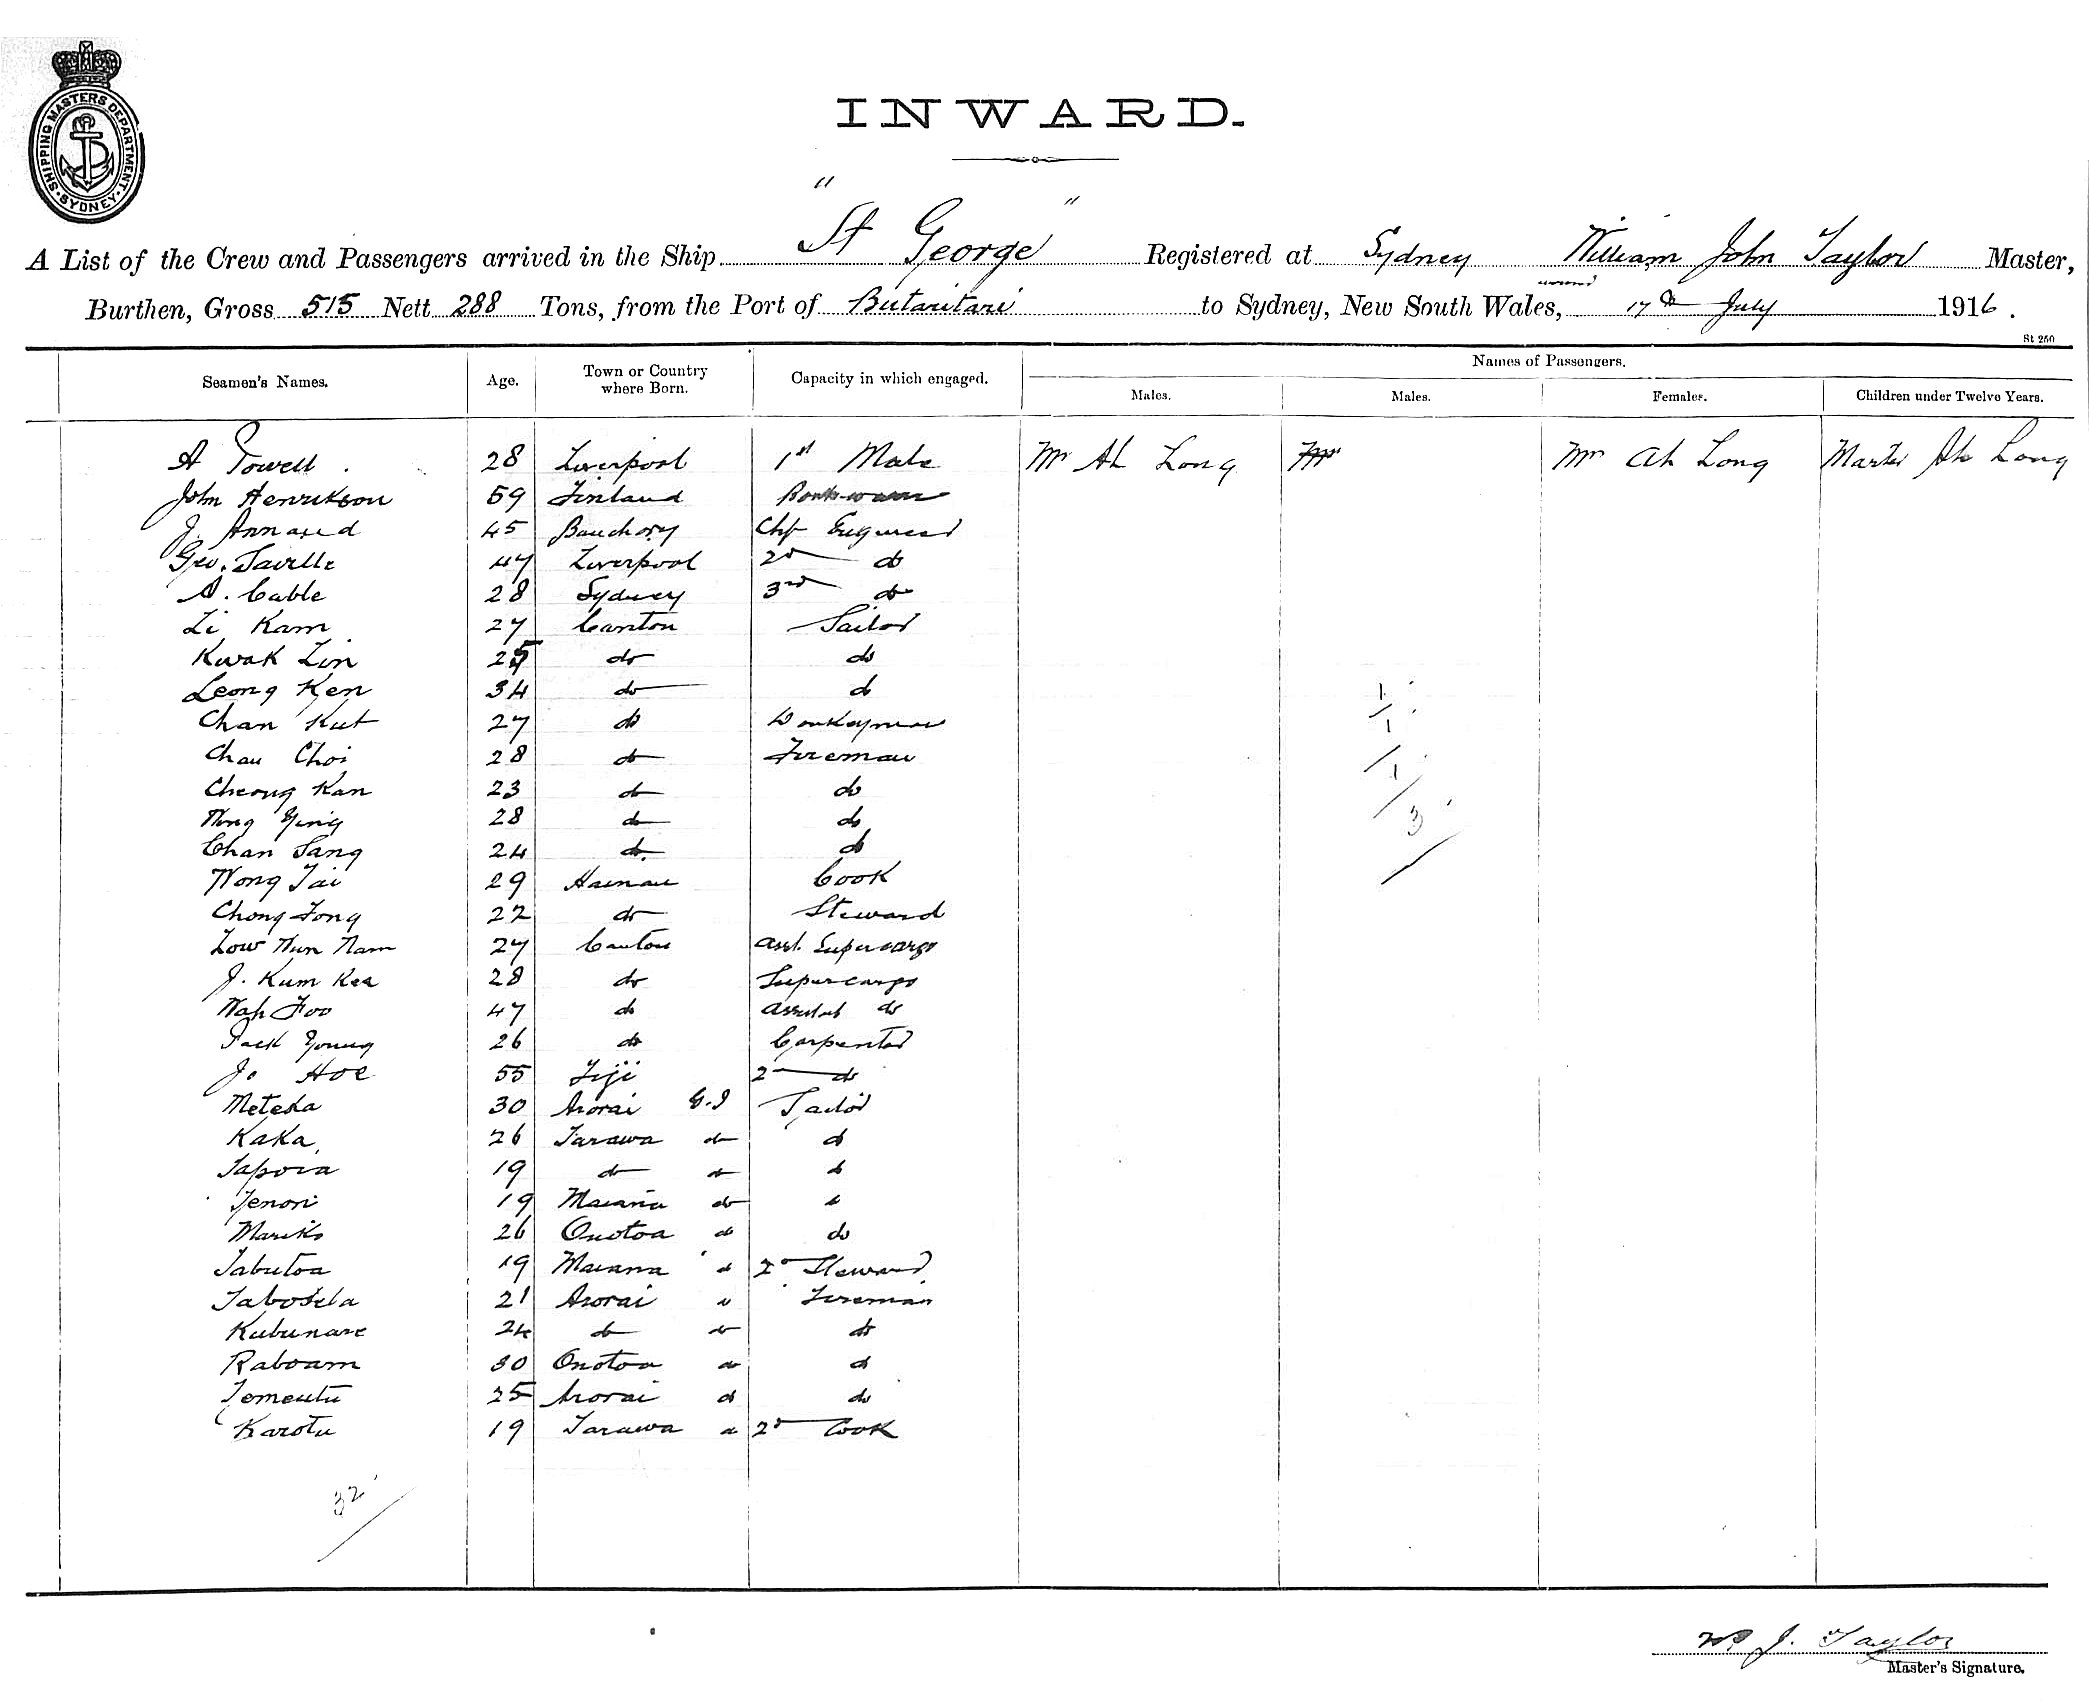 SHIPPING MASTERS DEPARTMENT
SYDNEY
INWARD.
A List of the Crew and Passengers arrived in the Ship "St George" Registered at Sydney William John Taylor Master,
Burthen, Gross 515 Nett 288 Tons, from the Port of Butaritari to Sydney, New South Wales, 17th July 1916.
St 250
Seamen's Names. Age. Town or Country where Born. Capacity in which engaged. Names of Passengers.
Males. Males. Females. Children under Twelve Years.
A Powell 28 Liverpool 1st Mate Mr Ah Long Mr Mrs Ah Long Master Ah Long
John Henrikson 59 Finland
J. Annand 45 Banchory Chf Engineer
Geo. Saville 47 Liverpool 2nd do
A. Cable 28 Sydney 3rd do
Li Kam 27 Canton Sailor
Kwok Lin 25 do do
Leong Ken 34 do do
Chan Kut 27 do Donkeyman
Chau Choi 28 do Fireman
Cheong Kan 23 do do
Ying 28 do do
Chan Sang 24 do do
Wong Tai 29 Hainan Cook
Chong Fong 22 do Steward
Low Nam 27 Canton Asst. Supercargo
J. Kum Kee 28 do Supercargo
Wah Foo 47 do Assistant do
Jack Young 26 do Carpenter
Jo Hoe 55 Fiji 2nd do
Meteka 30 Arorai G.I Sailor
Kaka 26 Tarawa do do
Tapoia 19 do do do
Tenori 19 Maiana do do
Mariko 26 Onotoa do do
Tabutoa 19 Maiana do 2nd Steward
21 Arorai do Fireman
Kubunare 24 do do do
Raboam 30 Onotoa do do
25 Arorai do do
Karotu 19 Tarawa do 2nd Cook
1
1
1
3
32
W. J. Taylor
Master's Signature.